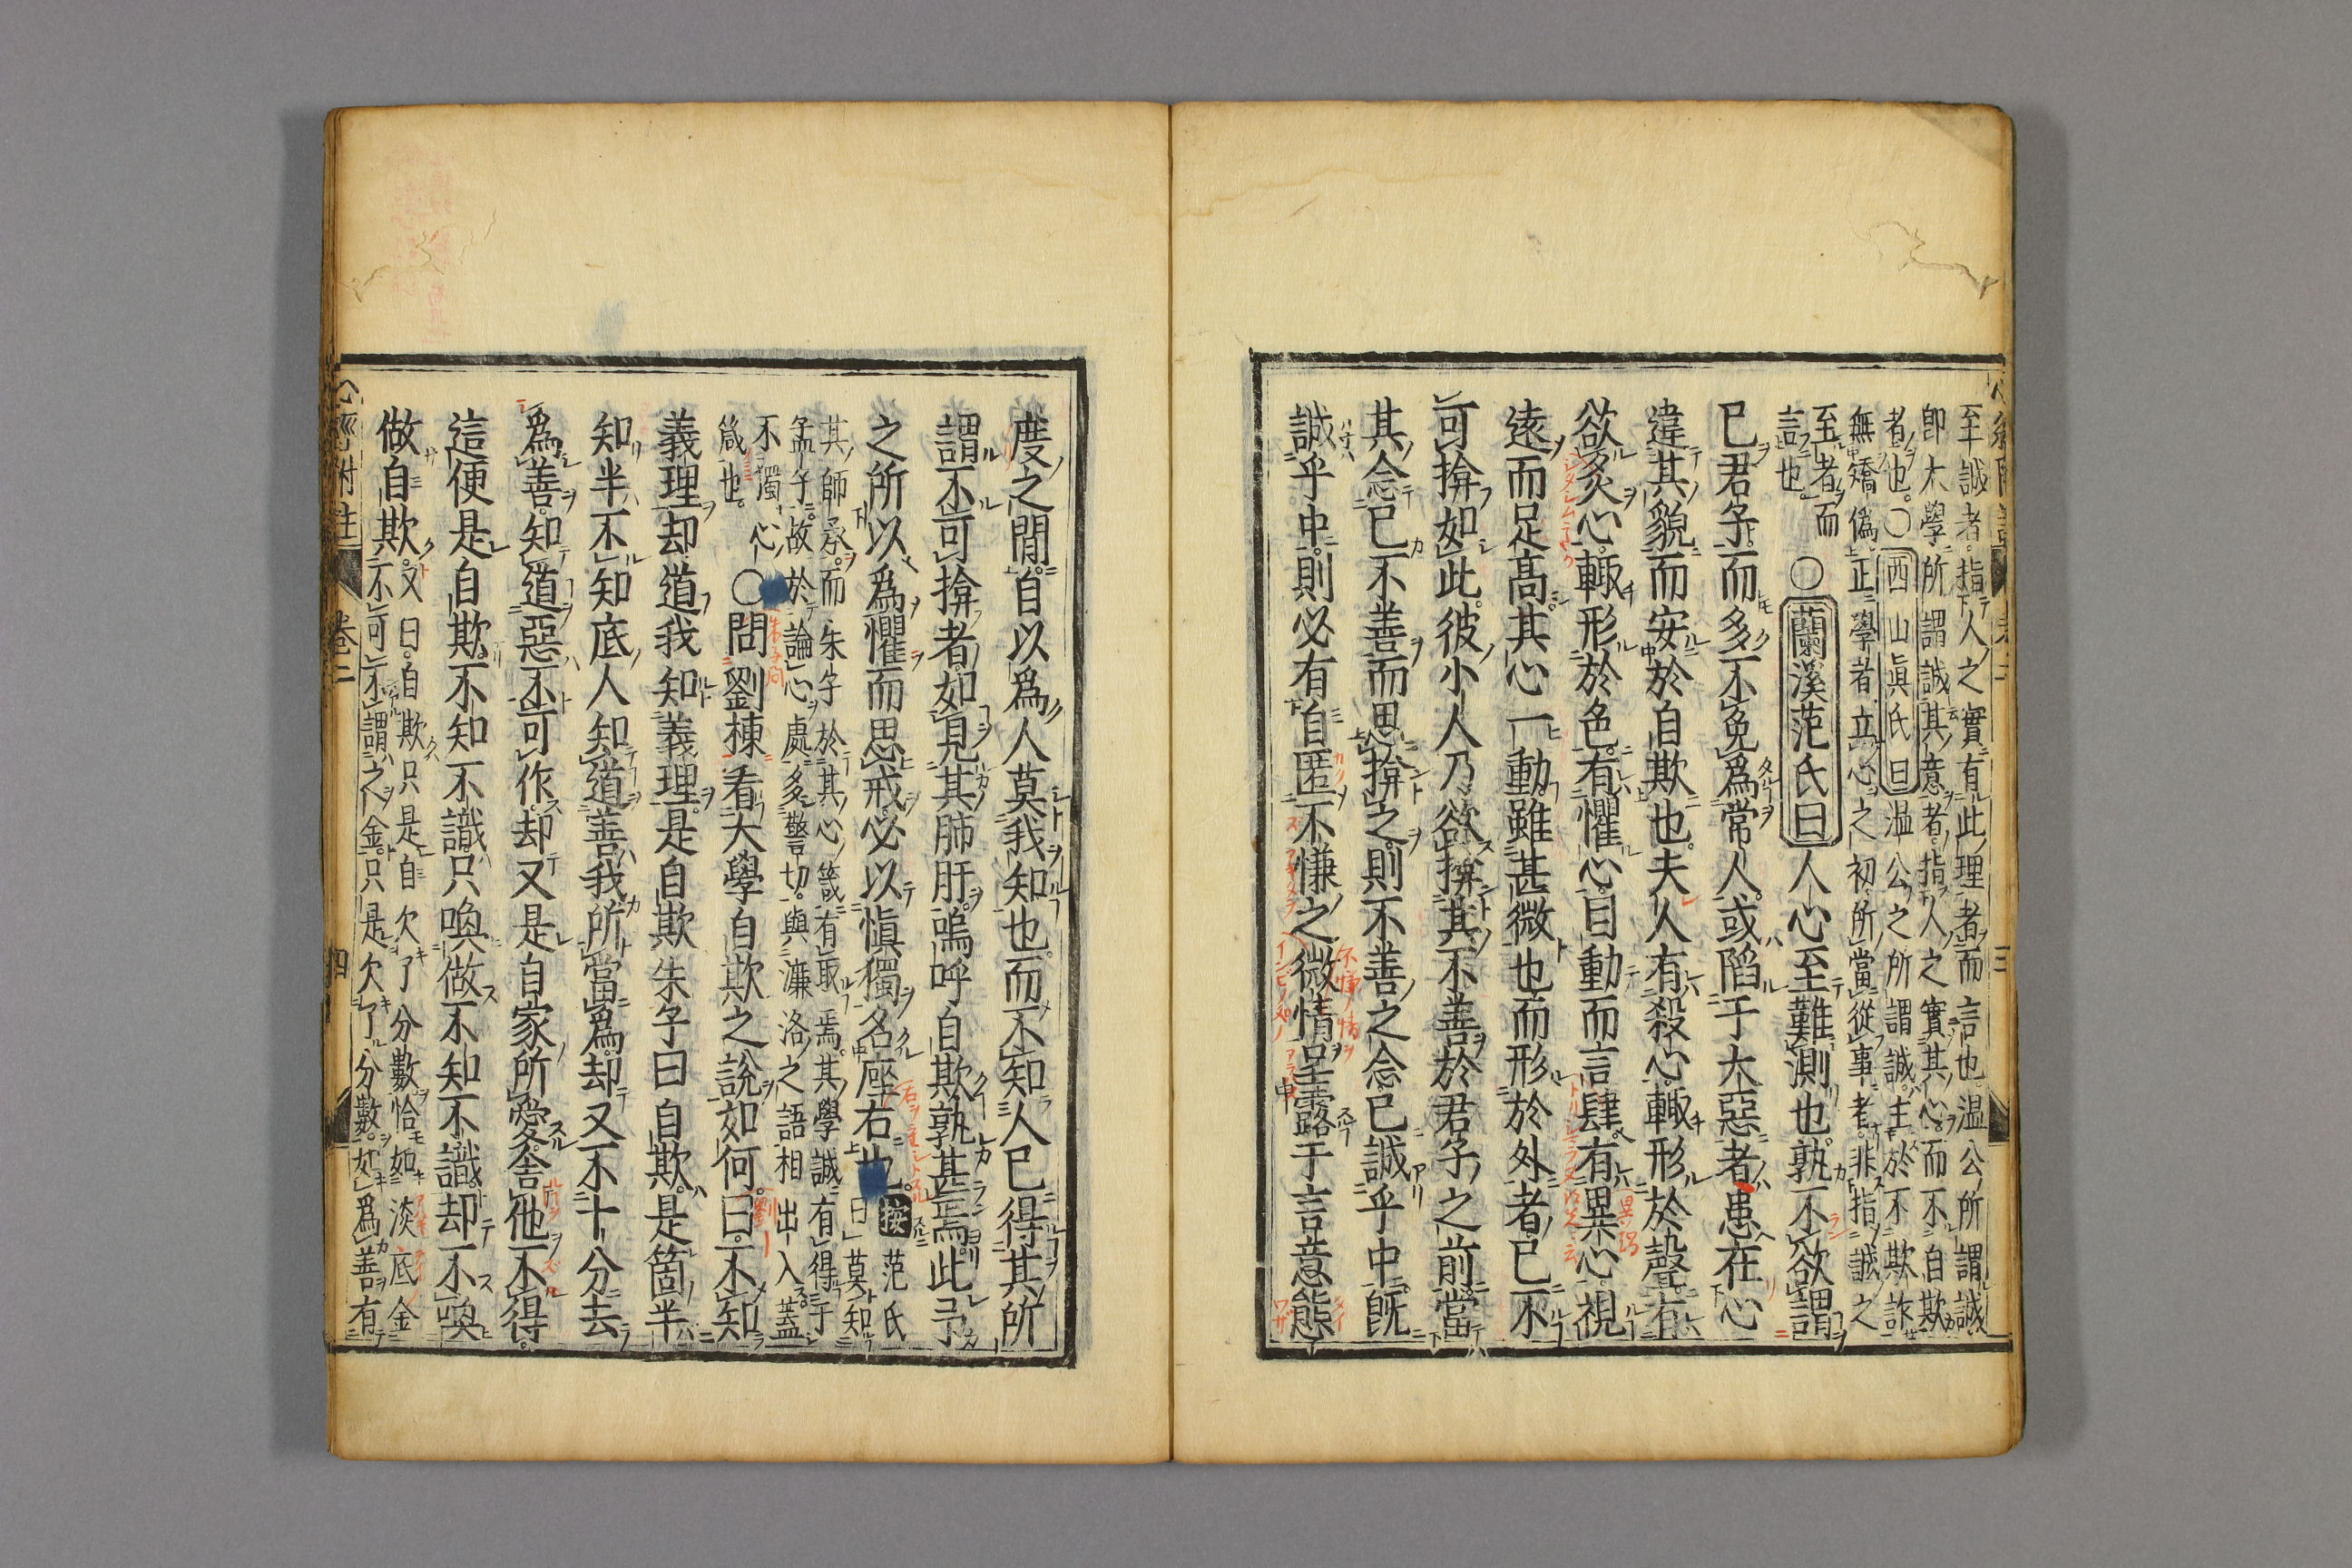 至誠者指人之實有此理者而言也溫公所謂誠
卽大學所謂誠其意者指人之實其心而不自欺
者也○西山眞氏曰溫公之所謂誠主於不欺詐
無矯僞正學者立心之初所當從事者非指誠之
至者而
言也
○蘭溪范氏曰人心至難測也孰不欲謂
已君子而多不免爲常人或陷于大惡者患在心
違其貌而安於自欺也夫人有殺心輙形於聲有
欲炙心輙形於色有懼心目動而言肆有異心視
遠而足高其心一動雖甚微也而形於外者已不
可揜如此彼小人乃欲揜其不善於君子之前當
其念已不善而思揜之則不善之念已誠乎中旣
誠乎中則必有自匿不慊之微情呈露于言意態
度之間自以爲人莫我知也而不知人已得其所
謂不可揜者如見其肺肝嗚呼自欺孰甚焉此予
之所以爲懼而思戒必以愼獨名座右也
按范氏
曰莫知
其師承而朱子於其心箴有取焉其學誠有得于
孟子故於論心處多警切與濂洛之語相出入蓋
不獨心
箴也
○問劉棟看大學自欺之說如何曰不知
義理却道我知義理是自欺朱子曰自欺是箇半
知半不知底人知道善我所當爲却又不十分去
爲善知道惡不可作却又是自家所愛舍他不得
這便是自欺不知不識只喚做不知不識却不喚
做自欺
又曰自欺只是自欠了分數恰如淡底金
不可不謂之金只是欠了分數如爲善有
心經附註
卷二
四